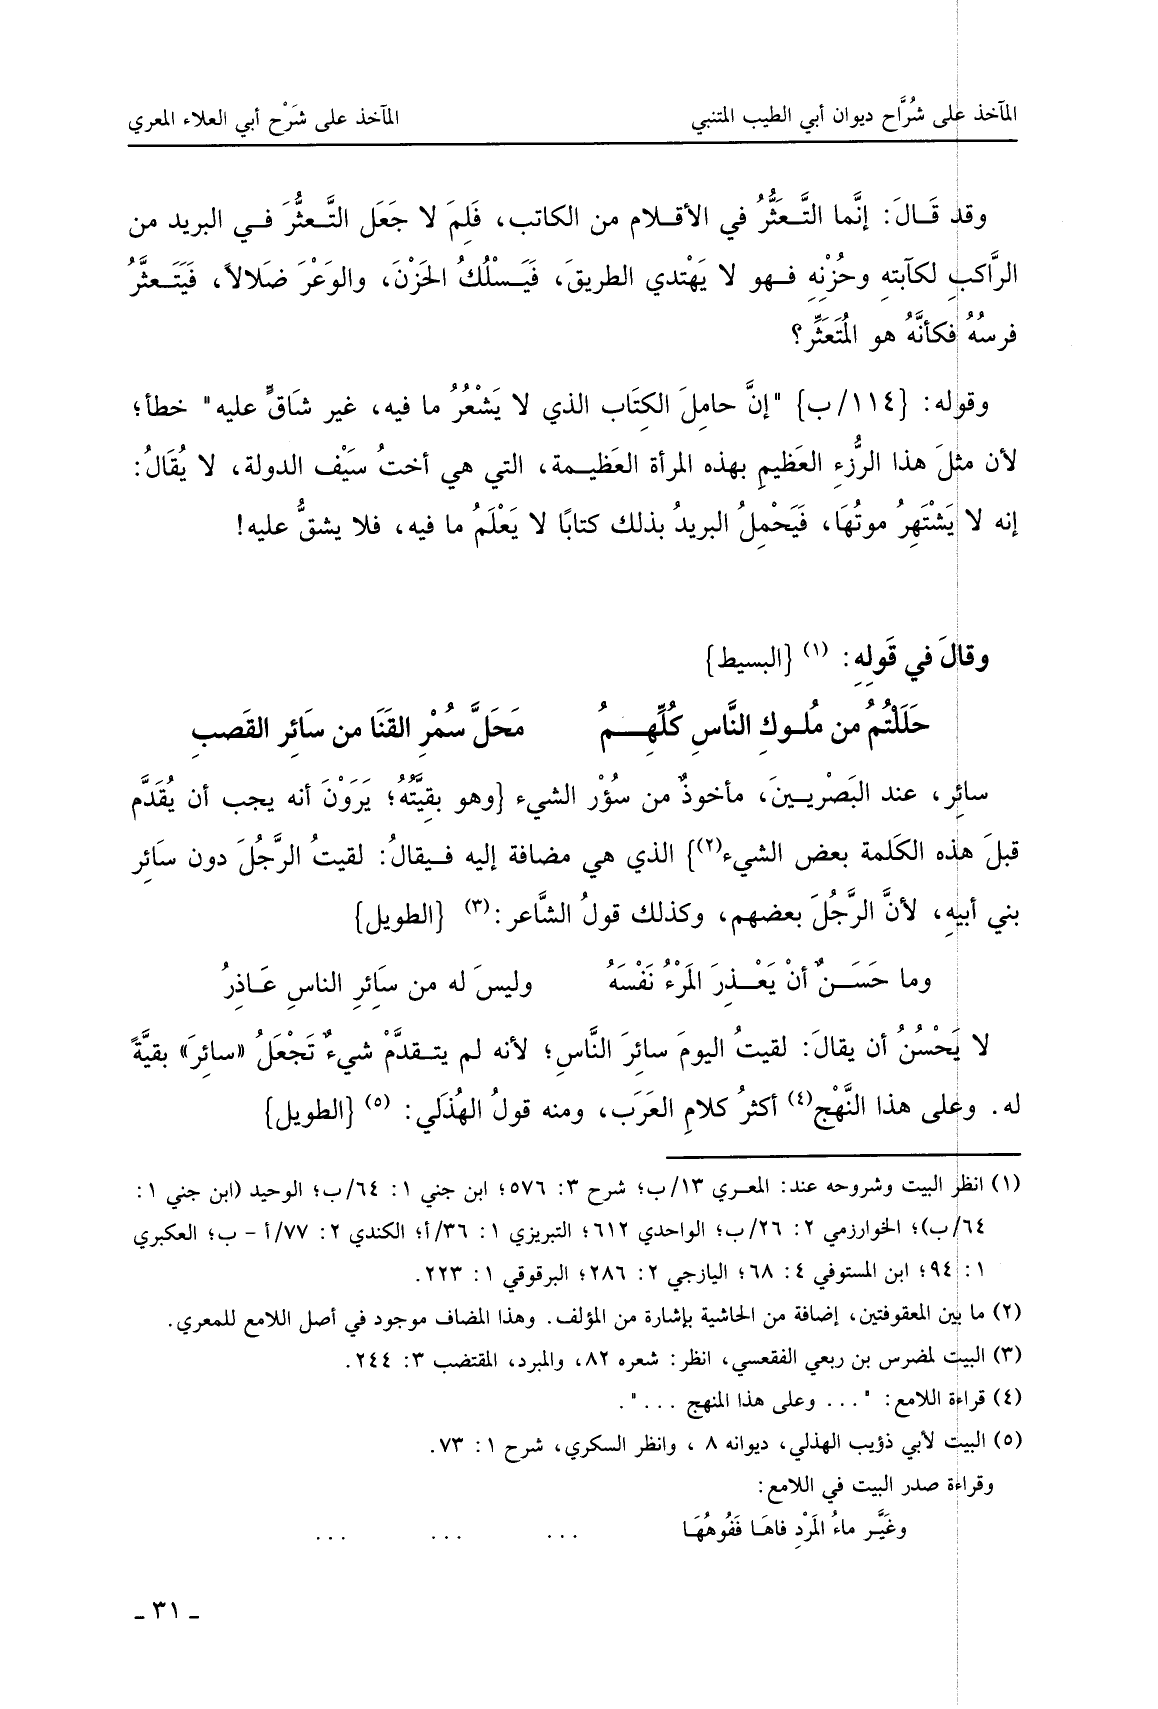 المآخذ على شُرَّاح ديوان أبي الطيب المتنبي المآخذ على شَرْح أبي العلاء المعري
وقد قَالَ: إنَّما التَّعَثُّرُ في الأقلام من الكاتب، فَلِمَ لا جَعَل التَّعثُّرَ في البريد من
الرَّاكبِ لكآبتهِ وحُزْنِهِ فهو لا يَهْتدي الطريقَ، فَيَسْلُكُ الحَزْنَ، والوَعْرَ ضَلالاً، فَيَتَعثَّرُ
فرسُهُ فكأنَّهُ هو المُتَعَثِّر؟
وقوله: {١١٤/ب} "إنَّ حامِلَ الكِتَاب الذي لا يَشْعُرُ ما فيه، غير شَاقٍّ عليه" خطأ؛
لأن مثلَ هذا الرُّزءِ العَظيمِ بهذه المرأة العَظيمة، التي هي أختُ سَيْف الدولة، لا يُقَالُ:
إنه لا يَشْتَهِرُ موتُهَا، فَيَحْمِلُ البريدُ بذلك كتابًا لا يَعْلَمُ ما فيه، فلا يشقُّ عليه!
وقالَ في قَولِهِ: (١) {البسيط}
حَلَلْتُمُ من مُلوكِ النَّاسِ كُلِّهِمُ مَحَلَّ سُمْرِ القَنَا من سَائِر القَصبِ
سائِر، عند البَصْريينَ، مأخوذٌ من سُؤْر الشيء {وهو بقِيَّتُهُ؛ يَرَوْنَ أنه يجب أن يُقَدَّم
قبلَ هذه الكَلمة بعض الشيء(٢)} الذي هي مضافة إليه فيقالُ: لقيتُ الرَّجُلَ دون سَائِر
بني أبيهِ، لأنَّ الرَّجُلَ بعضهم، وكذلك قولُ الشَّاعر:(٣) {الطويل}
وما حَسَنٌ أنْ يَعْذِرَ المَرْءُ نَفْسَهُ وليسَ له من سَائِرِ الناسِ عَاذِرُ
لا يَحْسُنُ أن يقالَ: لقيتُ اليومَ سائِرَ النَّاسِ؛ لأنه لم يتقدَّمْ شيءٌ تَجْعَلُ «سائِرَ» بقيَّةً
له. وعلى هذا النَّهْج(٤) أكثرُ كلامِ العَرَب، ومنه قولُ الهُذَلي: (٥) {الطويل}
(١) انظر البيت وشروحه عند: المعري ١٣/ب؛ شرح ٣: ٥٧٦؛ ابن جني ١: ٦٤/ب؛ الوحيد (ابن جني ١:
٦٤/ب)؛ الخوارزمي ٢: ٢٦/ب؛ الواحدي ٦١٢؛ التبريزي ١: ٣٦/أ؛ الكندي ٢: ٧٧/أ - ب؛ العكبري
١: ٩٤؛ ابن المستوفي ٤: ٦٨؛ اليازجي ٢: ٢٨٦؛ البرقوقي ١: ٢٢٣.
(٢) ما بين المعقوفتين، إضافة من الحاشية بإشارة من المؤلف. وهذا المضاف موجود في أصل اللامع للمعري.
(٣) البيت لمضرس بن ربعي الفقعسي، انظر: شعره ٨٢، والمبرد، المقتضب ٣: ٢٤٤.
(٤) قراءة اللامع: "... وعلى هذا المنهج ...".
(٥) البيت لأبي ذؤيب الهذلي، ديوانه ٨ ، وانظر السكري، شرح ١: ٧٣.
وقراءة صدر البيت في اللامع:
وغَيَّر ماءُ المَرْدِ فاهَا فَفُوهُهَا ... ... ...
ـ ٣١ ـ